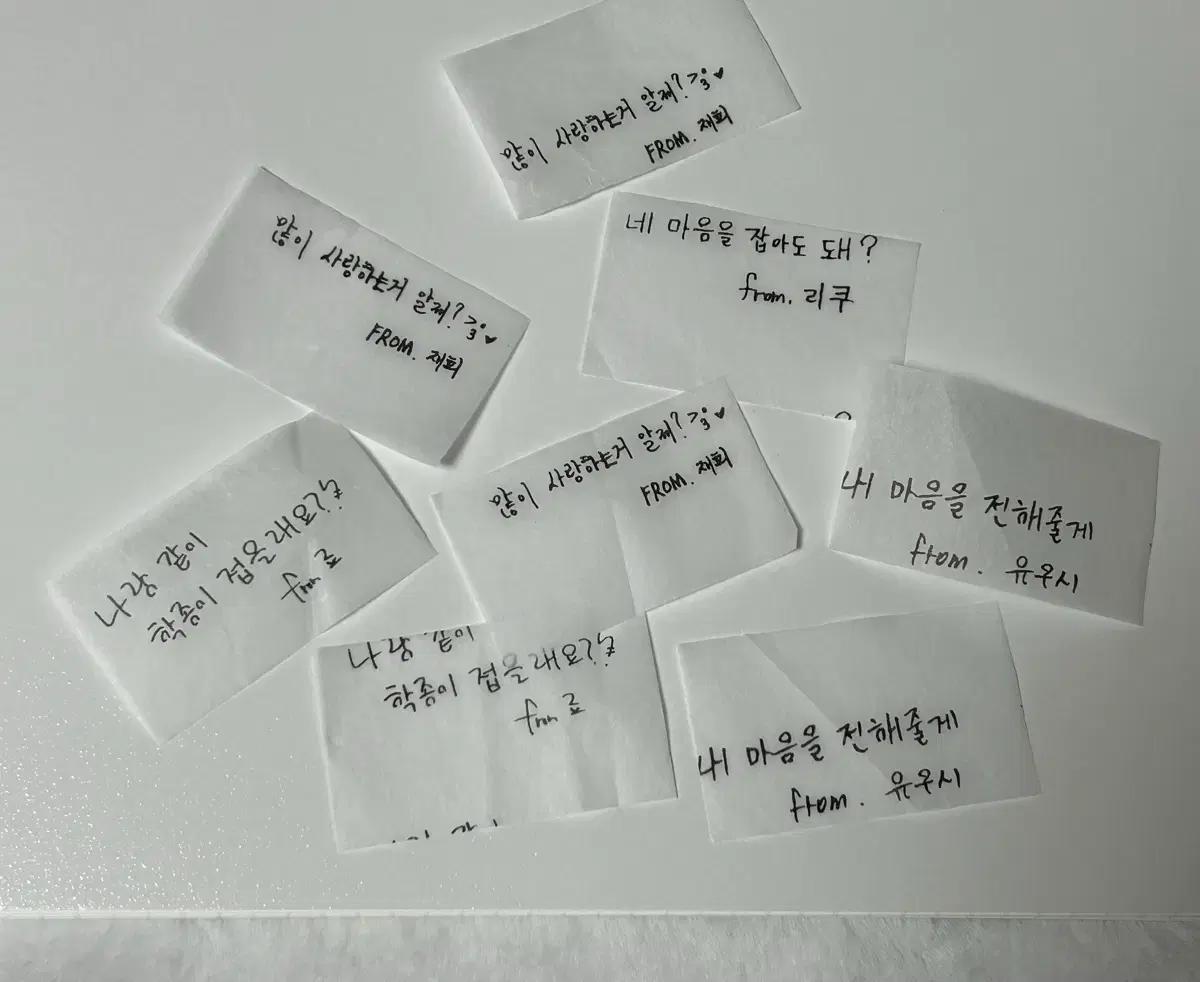 많이 사랑하는거 알제?
FROM. 재희
많이 사랑하는거 알제?
FROM. 재희
네 마음을 잡아도 돼?
from. 리쿠
많이 사랑하는거 알제?
FROM. 재희
내 마음을 전해줄게
from. 유우시
나랑 같이
학종이 접을래요??
from 료
나랑 같이
학종이 접을래요??
from 료
내 마음을 전해줄게
from. 유우시